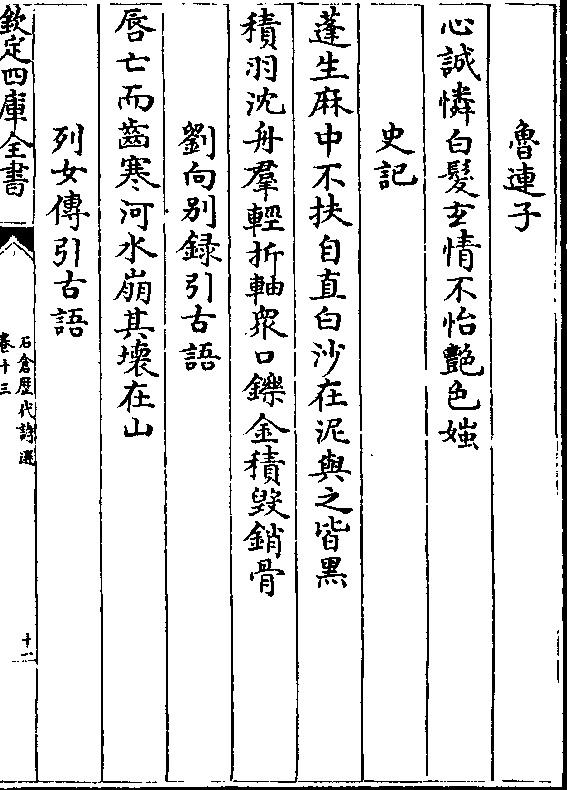 魯連子
心誠憐白髮玄情不怡艷色媸
史記
蓬生麻中不扶自直白沙在泥與之皆黑
積羽沈舟羣輕折軸衆口鑠金積毀銷骨
劉向别録引古語
唇亡而齒寒河水崩其壊在山
列女傳引古語
欽定四庫全書
石倉歴代詩選
卷十三
十一